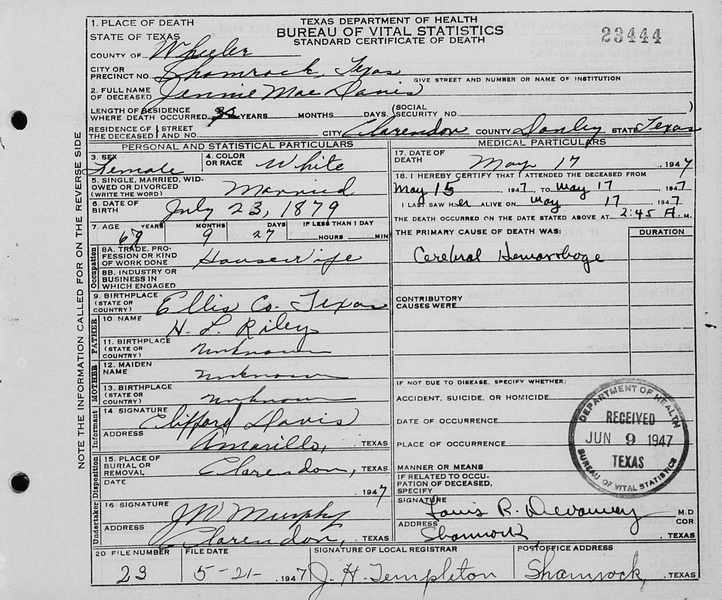 TEXAS DEPARTMENT OF HEALTH
BUREAU OF VITAL STATISTICS
STANDARD CERTIFICATE OF DEATH
23444
NOTE THE INFORMATION CALLED FOR ON THE REVERSE SIDE
1. PLACE OF DEATH
STATE OF TEXAS
COUNTY OF Wheeler
CITY OR PRECINCT NO. Shamrock, Texas
GIVE STREET AND NUMBER OR NAME OF INSTITUTION
2. FULL NAME OF DECEASED Jennie Mae Davis
LENGTH OF RESIDENCE WHERE DEATH OCCURRED YEARS MONTHS DAYS (SOCIAL SECURITY NO.
RESIDENCE OF THE DECEASED STREET AND NO. CITY Clarendon COUNTY Donley STATE Texas
PERSONAL AND STATISTICAL PARTICULARS
3. SEX Female
4. COLOR OR RACE White
5. SINGLE, MARRIED, WIDOWED OR DIVORCED (WRITE THE WORD) Married
6. DATE OF BIRTH July 23, 1879
7. AGE YEARS MONTHS DAYS IF LESS THAN 1 DAY
9 27 HOURS MIN
Occupation
8A. TRADE, PROFESSION OR KIND OF WORK DONE Housewife
8B. INDUSTRY OR BUSINESS IN WHICH ENGAGED
9. BIRTHPLACE (STATE OR COUNTRY) Ellis Co. Texas
FATHER
10 NAME H. L. Riley
11. BIRTHPLACE (STATE OR COUNTRY) unknown
MOTHER
12. MAIDEN NAME unknown
13. BIRTHPLACE (STATE OR COUNTRY) unknown
Informant
14 SIGNATURE Clifford Davis
ADDRESS Amarillo, TEXAS
Disposition
15. PLACE OF BURIAL OR REMOVAL Clarendon, TEXAS
1947
Undertaker
16 SIGNATURE J W Murphy
ADDRESS Clarendon, TEXAS
MEDICAL PARTICULARS
17. DATE OF DEATH May 17 1947
18. I HEREBY CERTIFY THAT I ATTENDED THE DECEASED FROM
May 15 1947, TO May 17 1947
I LAST SAW HER ALIVE ON May 17 1947
THE DEATH OCCURRED ON THE DATE STATED ABOVE AT 2:45 A. M.
THE PRIMARY CAUSE OF DEATH WAS: DURATION
Cerebral Hemorrhage
CONTRIBUTORY CAUSES WERE:
IF NOT DUE TO DISEASE, SPECIFY WHETHER:
ACCIDENT, SUICIDE, OR HOMICIDE
DATE OF OCCURRENCE
PLACE OF OCCURRENCE
MANNER OR MEANS
IF RELATED TO OCCUPATION OF DECEASED, SPECIFY
SIGNATURE M.D
ADDRESS Shamrock, TEXAS
COR
DEPARTMENT OF HEALTH
RECEIVED
JUN 9 1947
TEXAS
BUREAU OF VITAL STATISTICS
20 FILE NUMBER FILE DATE SIGNATURE OF LOCAL REGISTRAR POSTOFFICE ADDRESS
23 5-21- 1947 J. H. Templeton Shamrock, TEXAS